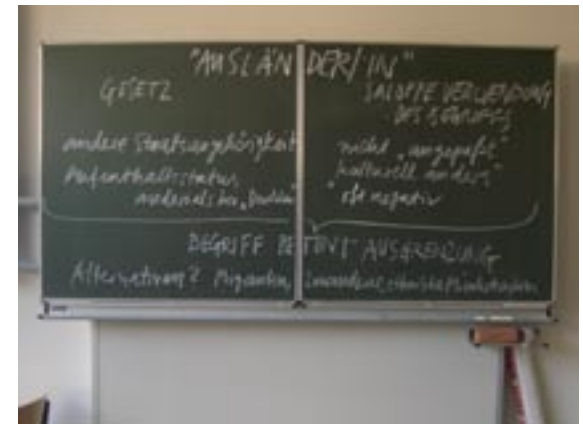 "AUSLÄNDER/IN"
GESETZ
andere Staatsangehörigkeit
Aufenthaltsstatus
anders als bei
SALOPPE VERWENDUNG
DES BEGRIFFS
nicht „angepaßt"
kulturell anders"
oft negativ
BEGRIFF BETONT AUSGRENZUNG
Alternativen? Migranten,